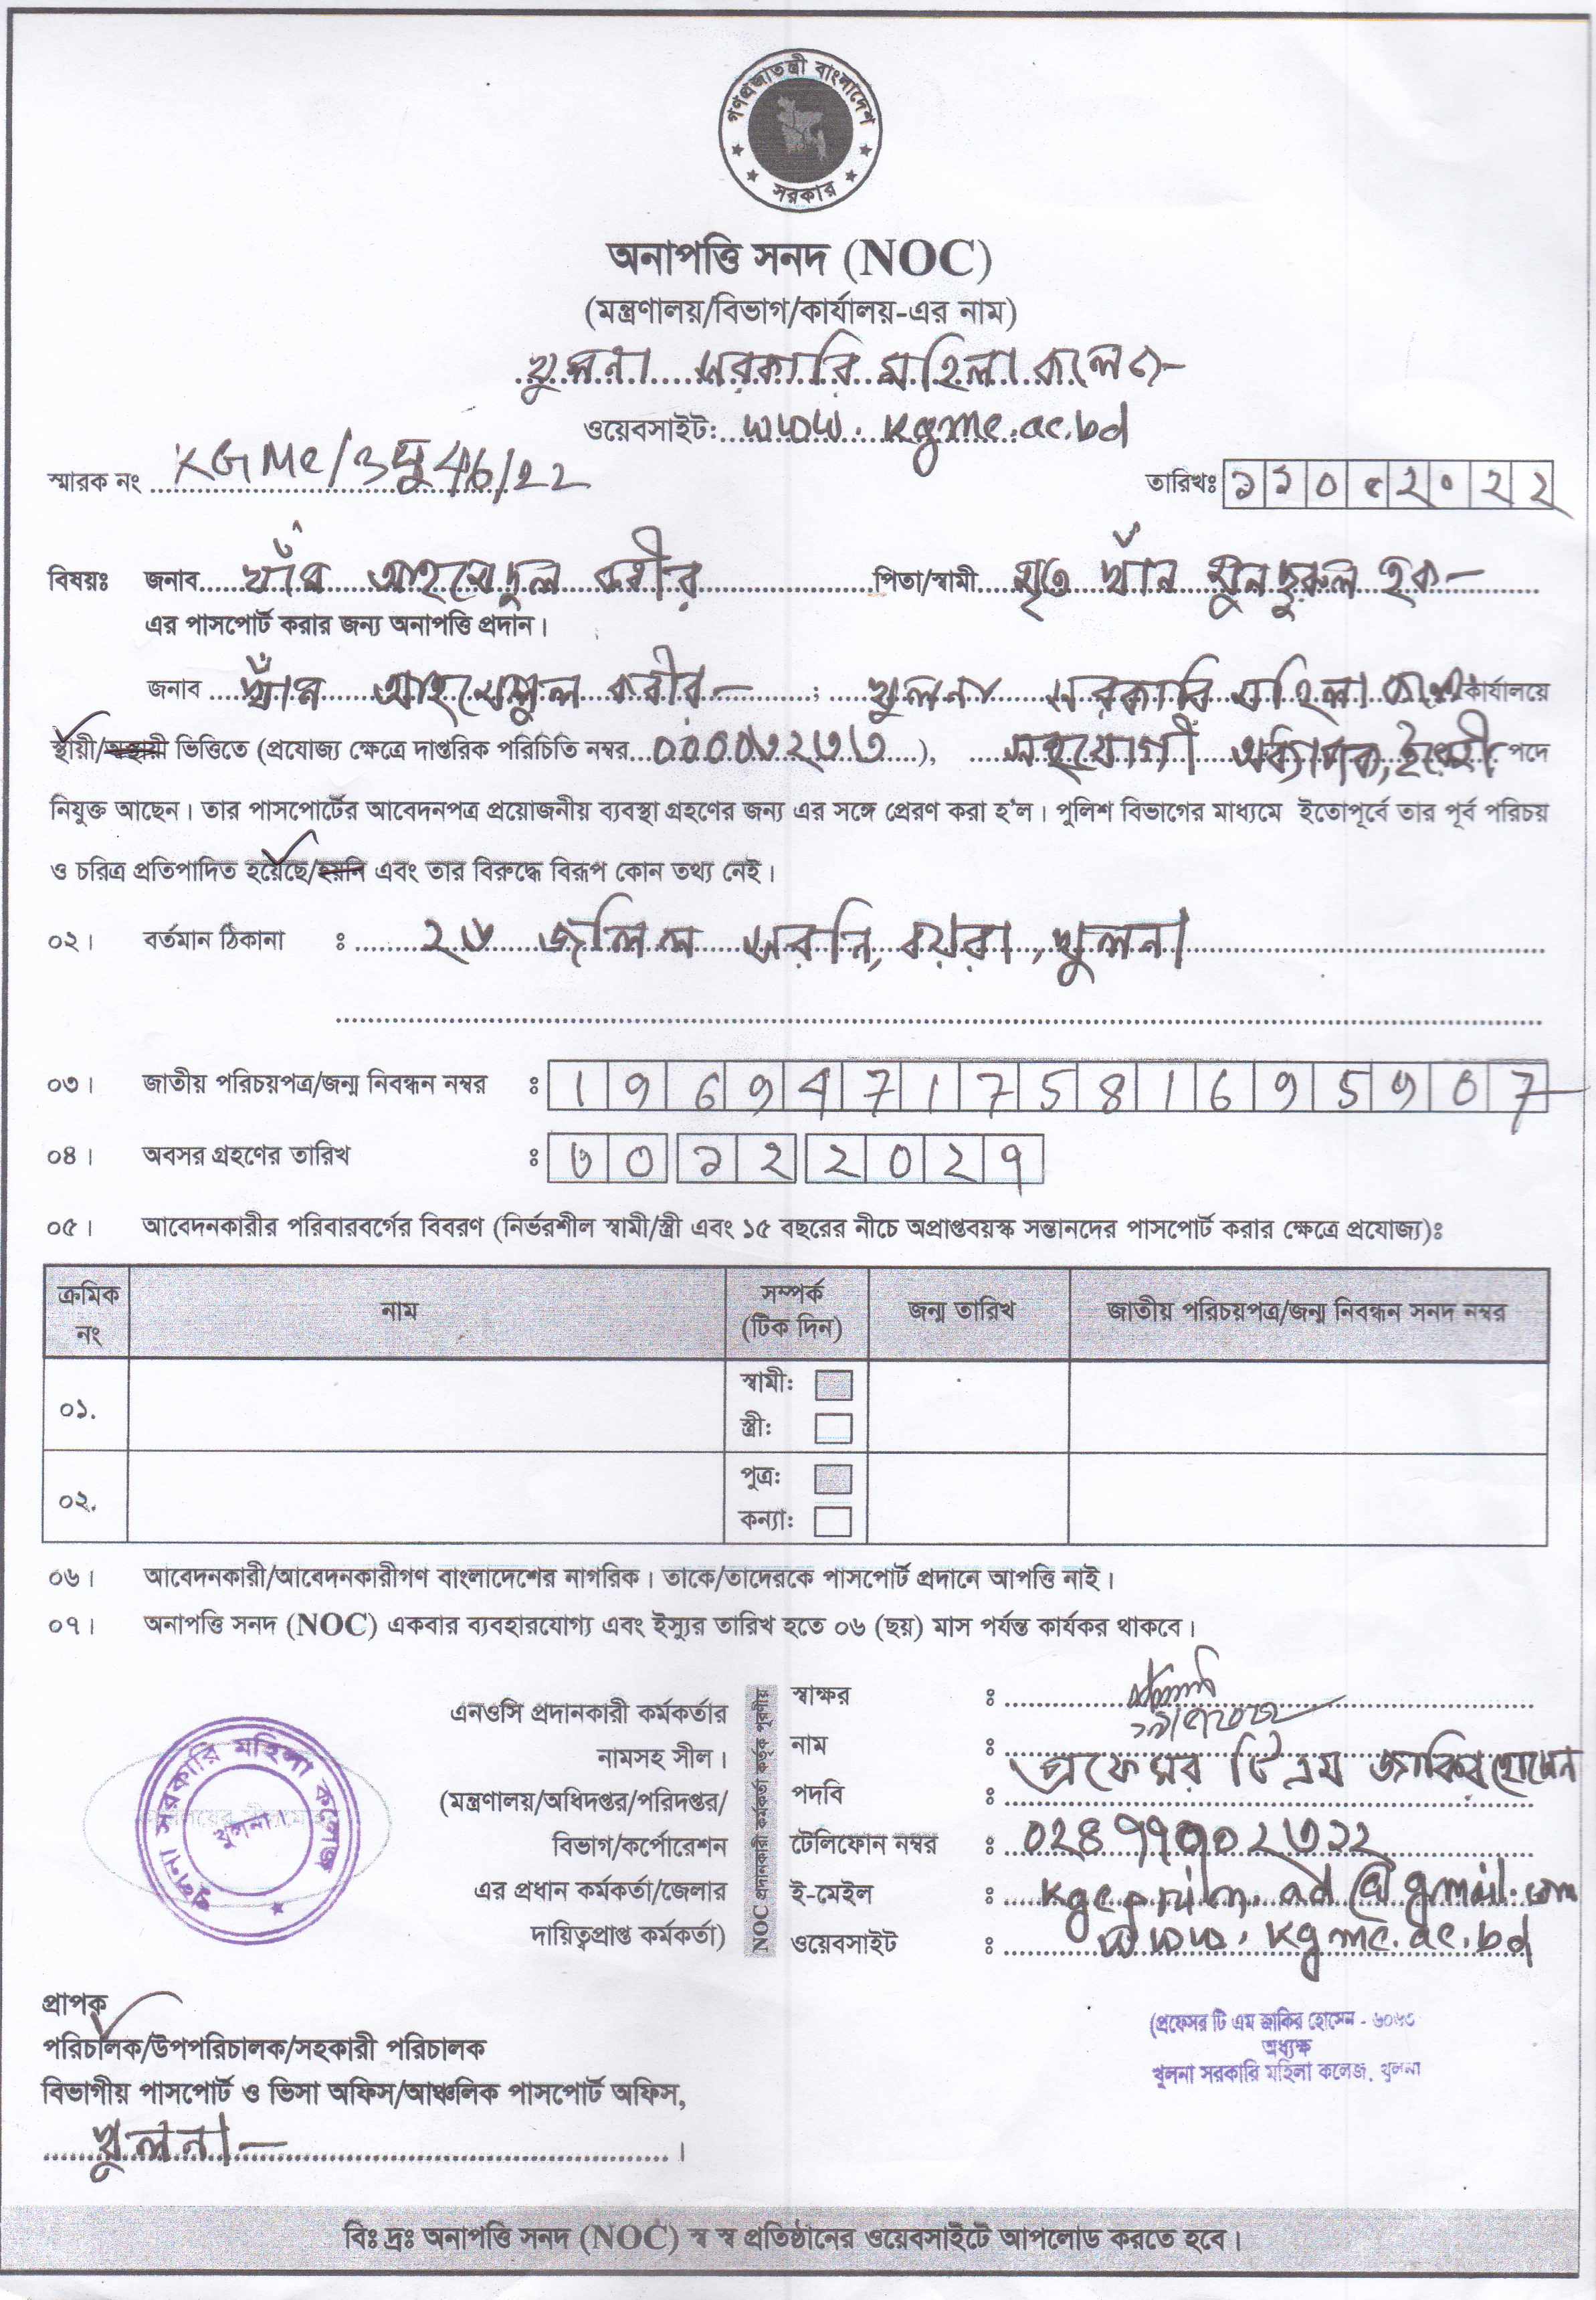 গণপ্রজাতন্ত্রী বাংলাদেশ
সরকার
অনাপত্তি সনদ (NOC)
(মন্ত্রণালয়/বিভাগ/কার্যালয়-এর নাম)
খুলনা সরকারি মহিলা কলেজ
ওয়েবসাইট: www.kgmc.ac.bd
স্মারক নং KGMC/অনু46/22
তারিখঃ ১১০৫২০২২
বিষয়ঃ জনাব খাঁন আহসেদুল করীর পিতা/স্বামী মৃত খাঁন মুনছুরুল হক
এর পাসপোর্ট করার জন্য অনাপত্তি প্রদান।
জনাব খাঁন করীর ; খুলনা সরকারি মহিলা কলেজ কার্যালয়ে
স্থায়ী/অস্থায়ী ভিত্তিতে (প্রযোজ্য ক্ষেত্রে দাপ্তরিক পরিচিতি নম্বর ), সহযোগী অধ্যাপক, ইংরেজী পদে
নিযুক্ত আছেন। তার পাসপোর্টের আবেদনপত্র প্রয়োজনীয় ব্যবস্থা গ্রহণের জন্য এর সঙ্গে প্রেরণ করা হ'ল। পুলিশ বিভাগের মাধ্যমে ইতোপূর্বে তার পূর্ব পরিচয়
ও চরিত্র প্রতিপাদিত হয়েছে/হয়নি এবং তার বিরুদ্ধে বিরূপ কোন তথ্য নেই।
০২। বর্তমান ঠিকানা ঃ ২৬ জলিল সরনি, বয়রা, খুলনা
০৩। জাতীয় পরিচয়পত্র/জন্ম নিবন্ধন নম্বর ঃ 19694717581695907
০৪। অবসর গ্রহণের তারিখ ঃ ৩০ ১২ ২০২৭
০৫। আবেদনকারীর পরিবারবর্গের বিবরণ (নির্ভরশীল স্বামী/স্ত্রী এবং ১৫ বছরের নীচে অপ্রাপ্তবয়স্ক সন্তানদের পাসপোর্ট করার ক্ষেত্রে প্রযোজ্য)ঃ
ক্রমিক নং নাম সম্পর্ক (টিক দিন) জন্ম তারিখ জাতীয় পরিচয়পত্র/জন্ম নিবন্ধন সনদ নম্বর
০১. স্বামী:
স্ত্রী:
০২. পুত্র:
কন্যা:
০৬। আবেদনকারী/আবেদনকারীগণ বাংলাদেশের নাগরিক। তাকে/তাদেরকে পাসপোর্ট প্রদানে আপত্তি নাই।
০৭। অনাপত্তি সনদ (NOC) একবার ব্যবহারযোগ্য এবং ইস্যুর তারিখ হতে ০৬ (ছয়) মাস পর্যন্ত কার্যকর থাকবে।
খুলনা সরকারি মহিলা কলেজ
খুলনা।
এনওসি প্রদানকারী কর্মকর্তার
নামসহ সীল।
(মন্ত্রণালয়/অধিদপ্তর/পরিদপ্তর/
বিভাগ/কর্পোরেশন
এর প্রধান কর্মকর্তা/জেলার
দায়িত্বপ্রাপ্ত কর্মকর্তা)
NOC প্রদানকারী কর্মকর্তা কর্তৃক পূরণীয়
স্বাক্ষর ঃ
নাম ঃ প্রফেসর টি এম জাকির হোসেন
পদবি ঃ
টেলিফোন নম্বর ঃ
ই-মেইল ঃ
ওয়েবসাইট ঃ www.kgmc.ac.bd
(প্রফেসর টি এম জাকির হোসেন - ৬০৬৩
অধ্যক্ষ
খুলনা সরকারি মহিলা কলেজ, খুলনা
প্রাপক
পরিচালক/উপপরিচালক/সহকারী পরিচালক
বিভাগীয় পাসপোর্ট ও ভিসা অফিস/আঞ্চলিক পাসপোর্ট অফিস,
খুলনা।
বিঃ দ্রঃ অনাপত্তি সনদ (NOC) স্ব স্ব প্রতিষ্ঠানের ওয়েবসাইটে আপলোড করতে হবে।